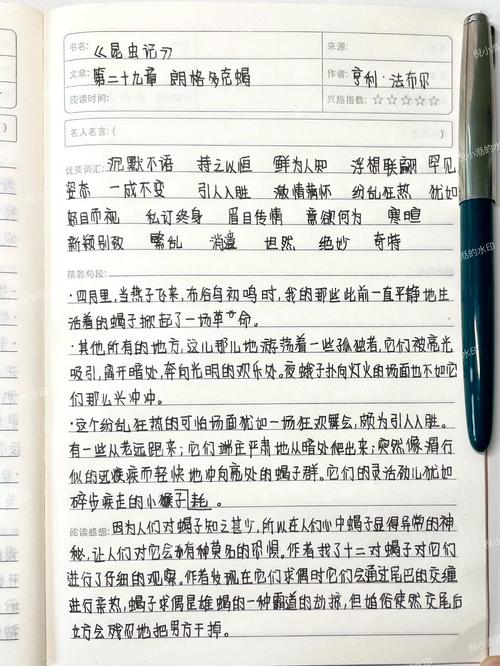 书名:《昆虫记》 来源:
文章: 第二十九章 朗格多克蝎 作者: 亨利·法布尔
阅读时间: 兴趣指数: ☆☆☆☆☆
名人名言:( )
优美词汇: 沉默不语 持之以恒 鲜为人知 浮想联翩 罕见
姿态 一成不变 引人入胜 激情满怀 纷乱狂热 犹如
怒目而视 私订终身 眉目传情 意欲何为 寒暄
新颖别致 繁乱 消遣 坦然 绝妙 奇特
精彩句段:
·四月里,当燕子飞来,布谷鸟初鸣时,我的那些此前一直平静地生
活着的蝎子掀起了一场革命。
·其他所有的地方,这儿那儿地游荡着一些孤独者,它们被亮光
吸引,离开暗处,奔向光明的欢乐处。夜蛾子扑向灯火的场面也不如它
们那么兴冲冲。
·这个纷乱狂热的可怕场面犹如一场狂欢舞会,颇为引人入胜。
有一些从老远跑来;它们端庄严肃地从暗处爬出来;突然像滑行
似的迅疾而轻快地冲向亮处的蝎子群。它们的灵活劲儿犹如
碎步疾走的小耗。
阅读感想: 因为人们对蝎子知之甚少,所以在人们心中蝎子显得异常的神
秘,让人们对它会有种莫名的恐惧,作者找了十二对蝎子对它们
进行了仔细的观察,作者发现在它们求偶时它们会通过尾巴的交缠
进行亲热,蝎子求偶是雄蝎的一种霸道的劫掠,但婚俗使然交尾后
立方会残忍地把男方干掉。
倪小湉的水印